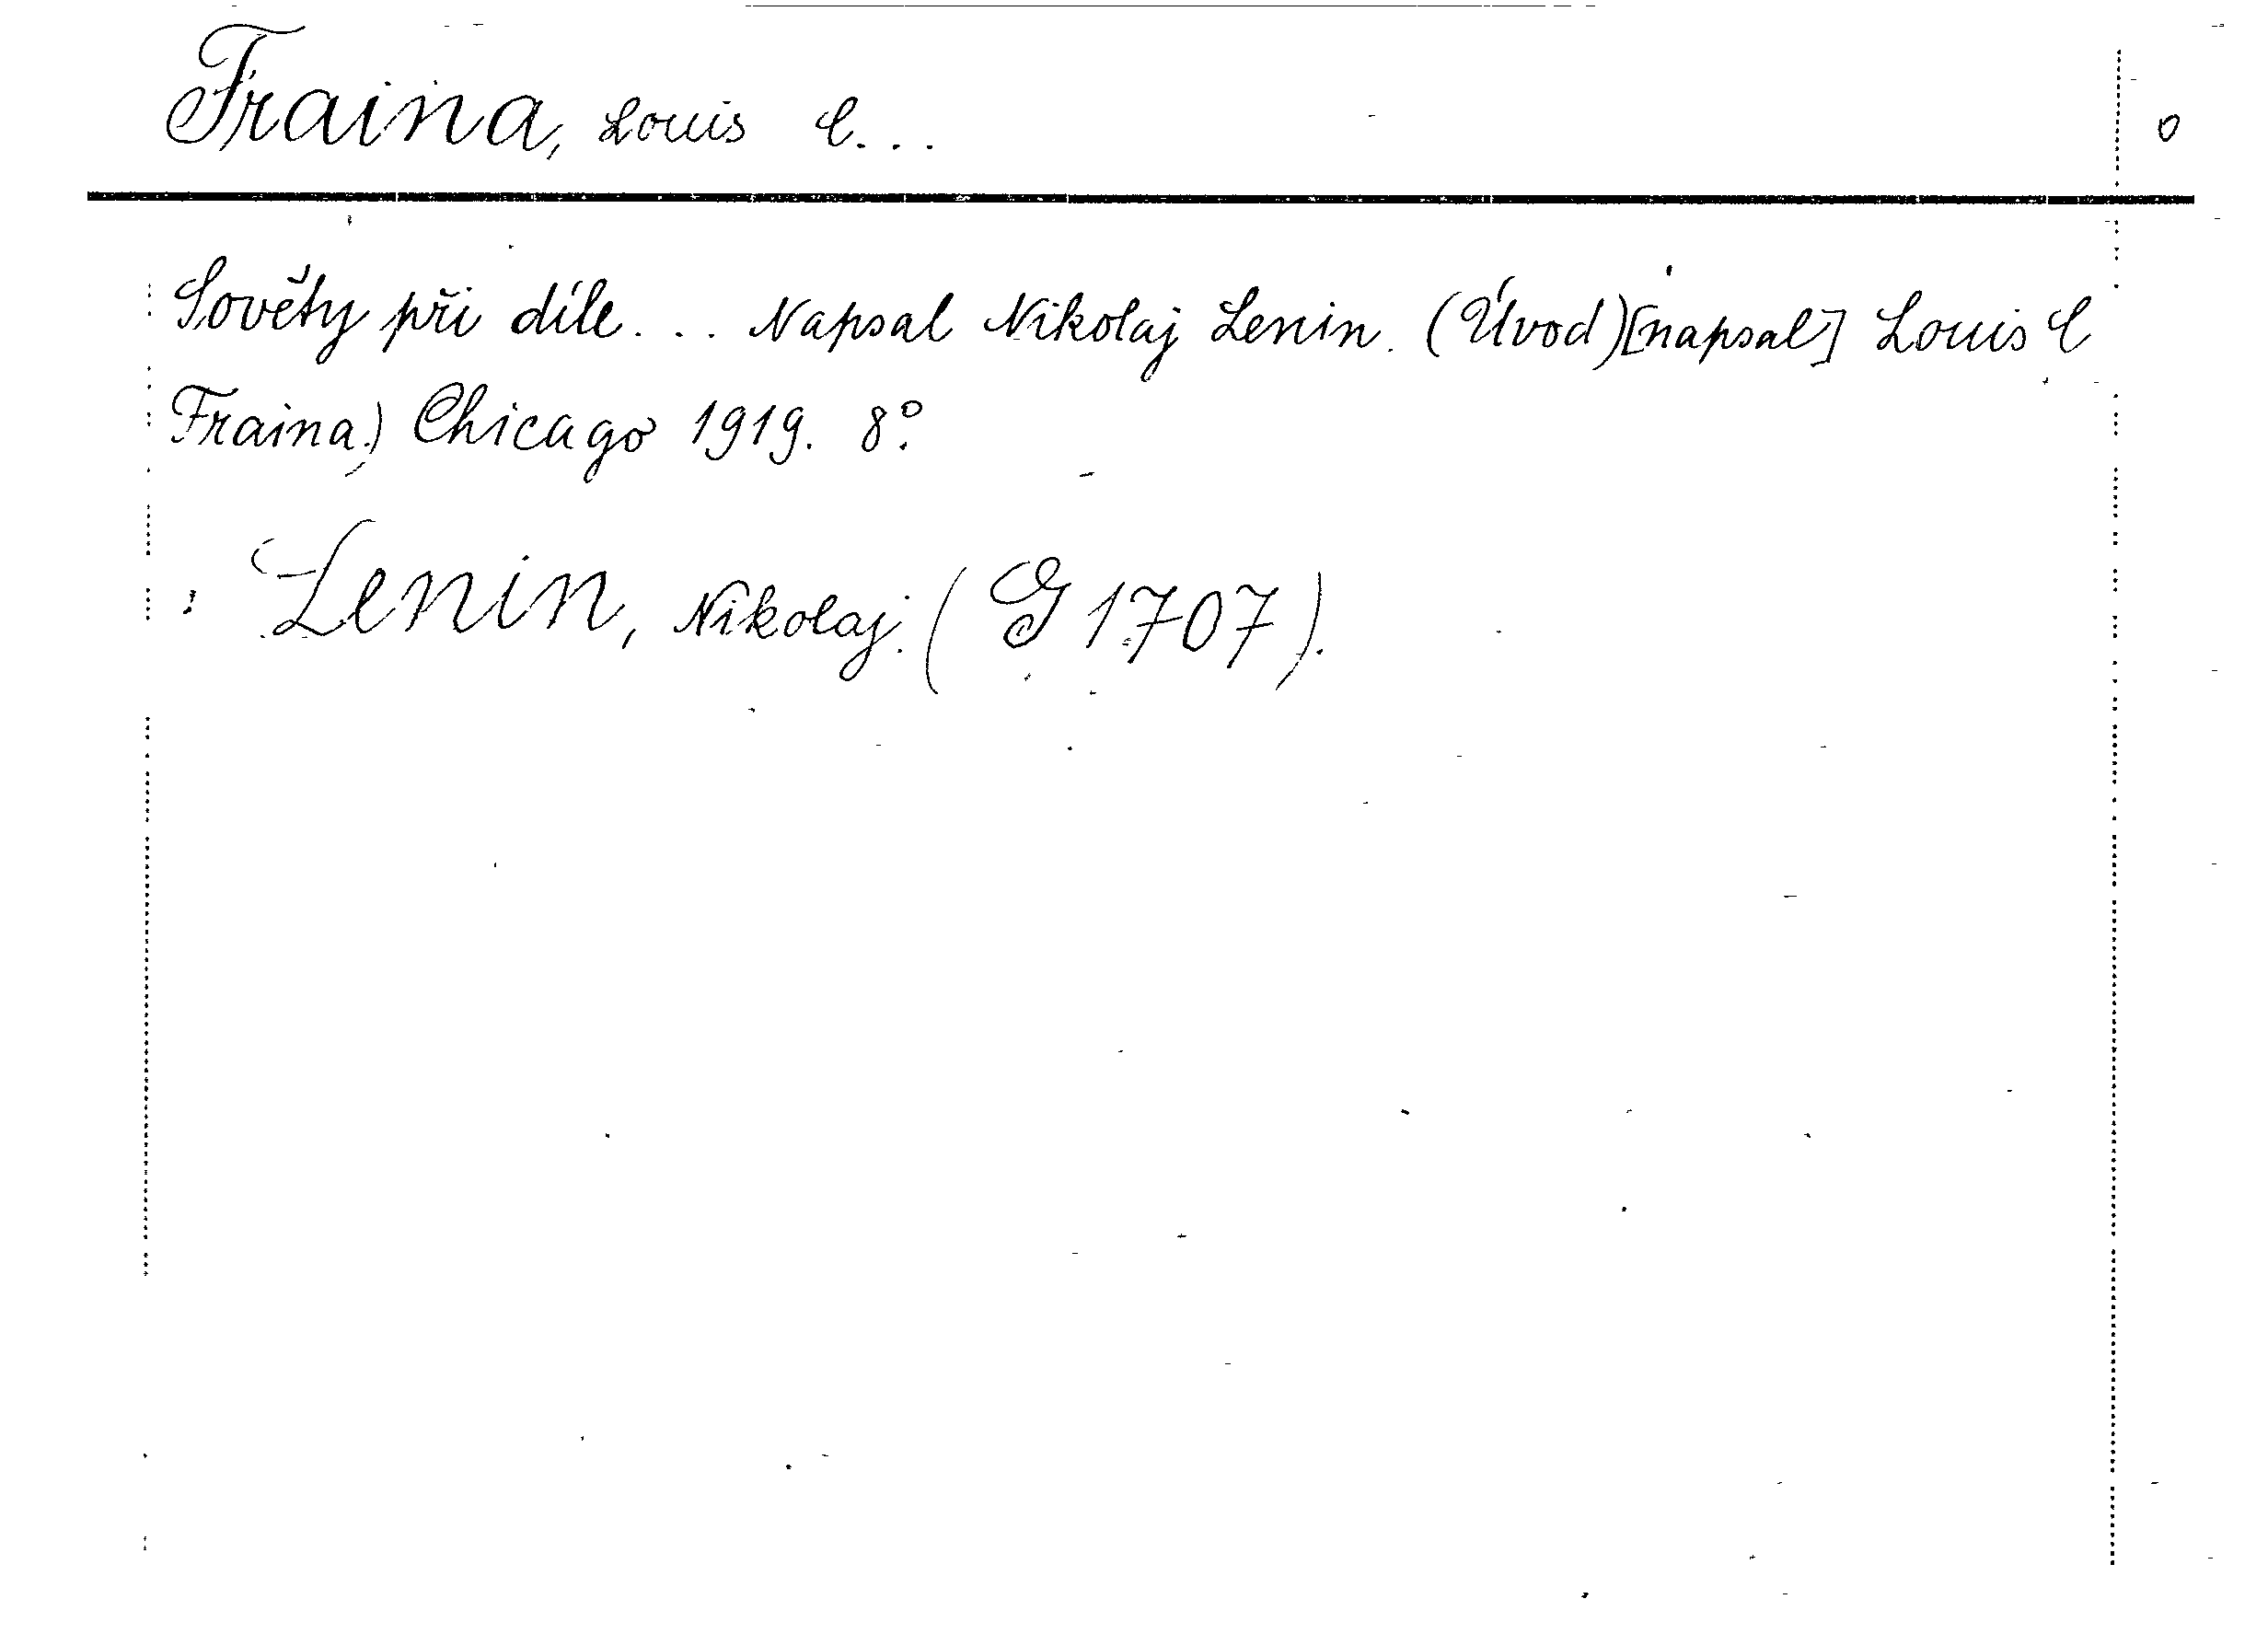 Fraina, Louis C...
o
Sověty při díle... Napsal Nikolaj Lenin. (Úvod)[napsal] Louis C
Fraina.) Chicago 1919. 8°.
Lenin, Nikolaj. (G 1707).